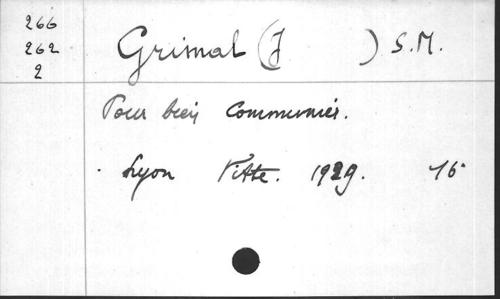 266
262
2
Grimal (J ) S.M.
Pour bien communier.
Lyon Vitte. 1929. 16